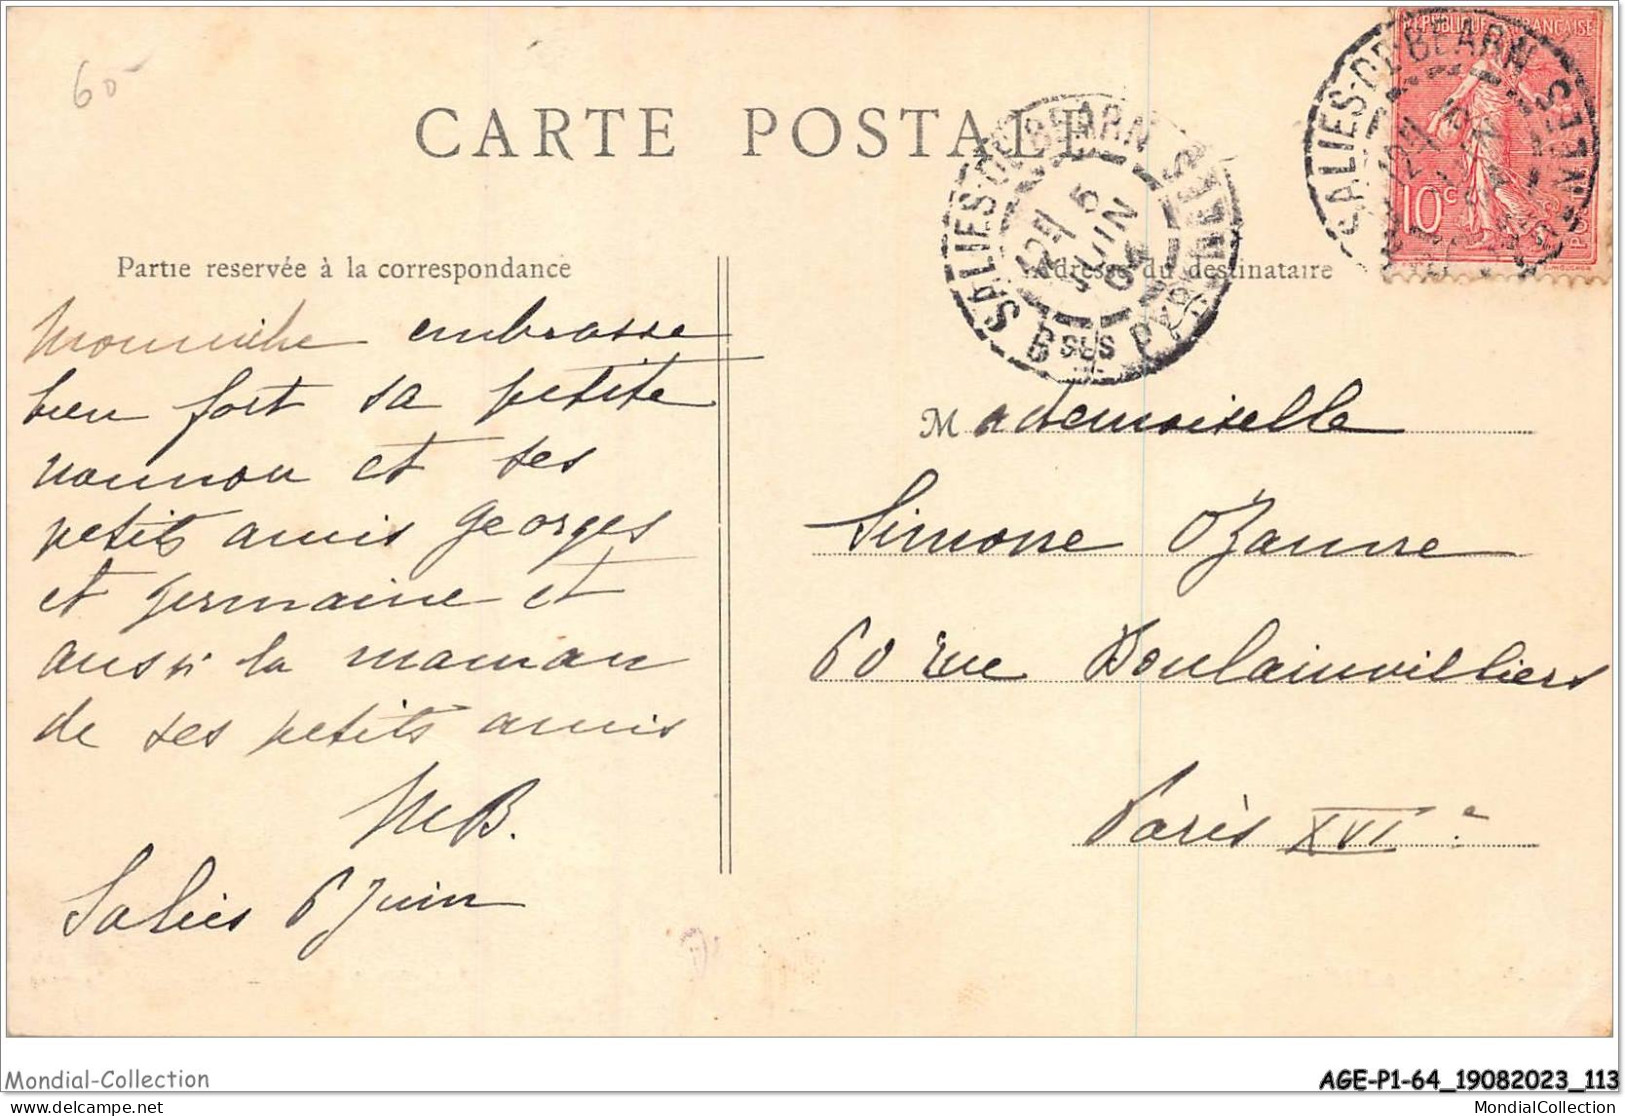 60
CARTE POSTALE
REPUBLIQUE FRANÇAISE
10 c
SALIES-DE-BEARN
BSES PYRENEES
5
JUIN
SALIES-DE-BEARN
PYRENEES
Partie reservée à la correspondance
Adresse du destinataire
embrasse
bien fort sa petite
nounou et ses
petits amis Georges
et germaine et
aussi la maman
de ses petits amis
MB.
Salies 6 Juin
Mademoiselle
Simone Ozanne
60 rue Boulainvilliers
Paris XVIe
Mondial-Collection
AGE-P1-64_19082023_113
delcampe.net
MondialCollection